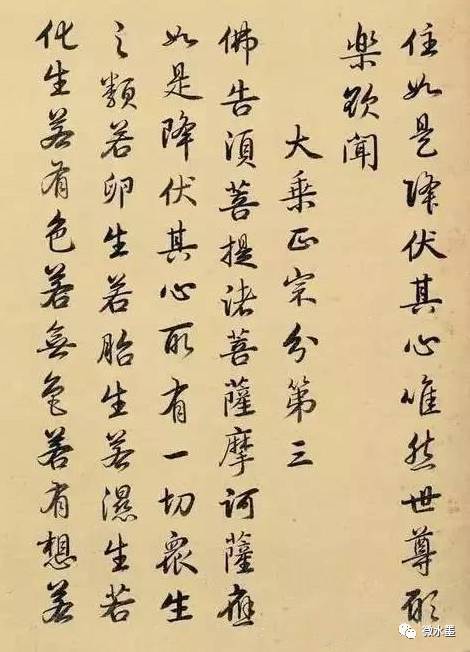 住如是降伏其心唯然世尊願
樂欲聞
大乘正宗分第三
佛告須菩提諸菩薩摩訶薩應
如是降伏其心所有一切衆生
之類若卵生若胎生若濕生若
化生若有色若無色若有想若
微水墨